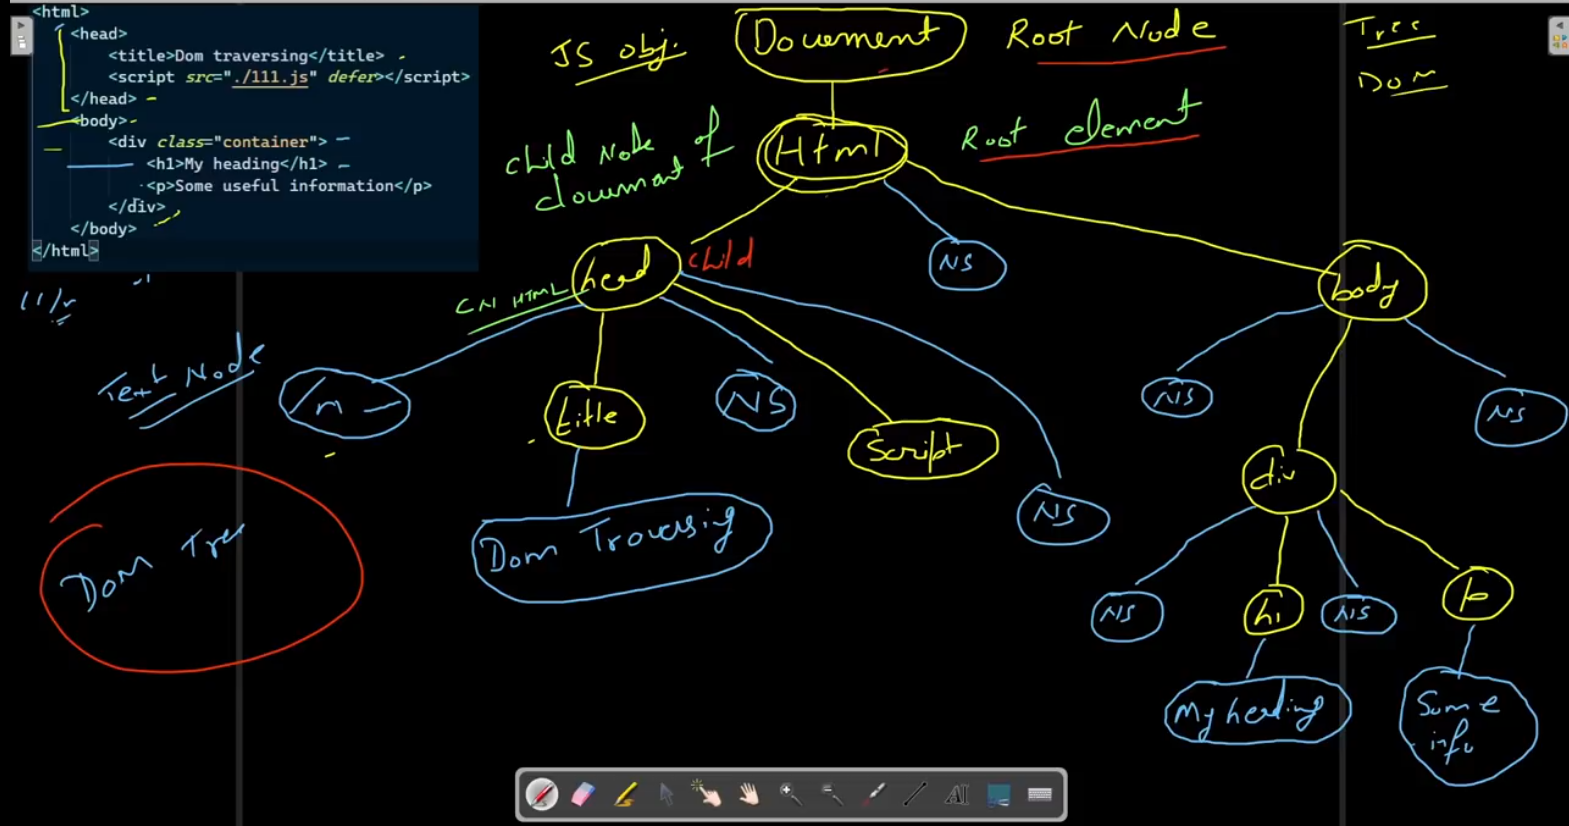 <html>
<head>
<title>Dom traversing</title>
<script src="./111.js" defer></script>
</head>
<body>
<div class="container">
<h1>My heading</h1>
<p>Some useful information</p>
</div>
</body>
</html>
JS obj.
Document
Root Node
Tree
DOM
Child Node of
document
Html
Root element
head
child
CN HTML
NS
body
Text Node
/n
title
NS
Script
NS
NS
NS
Dom Traversing
div
DOM Tree
NS
h1
NS
p
My heading
Some
info
AI